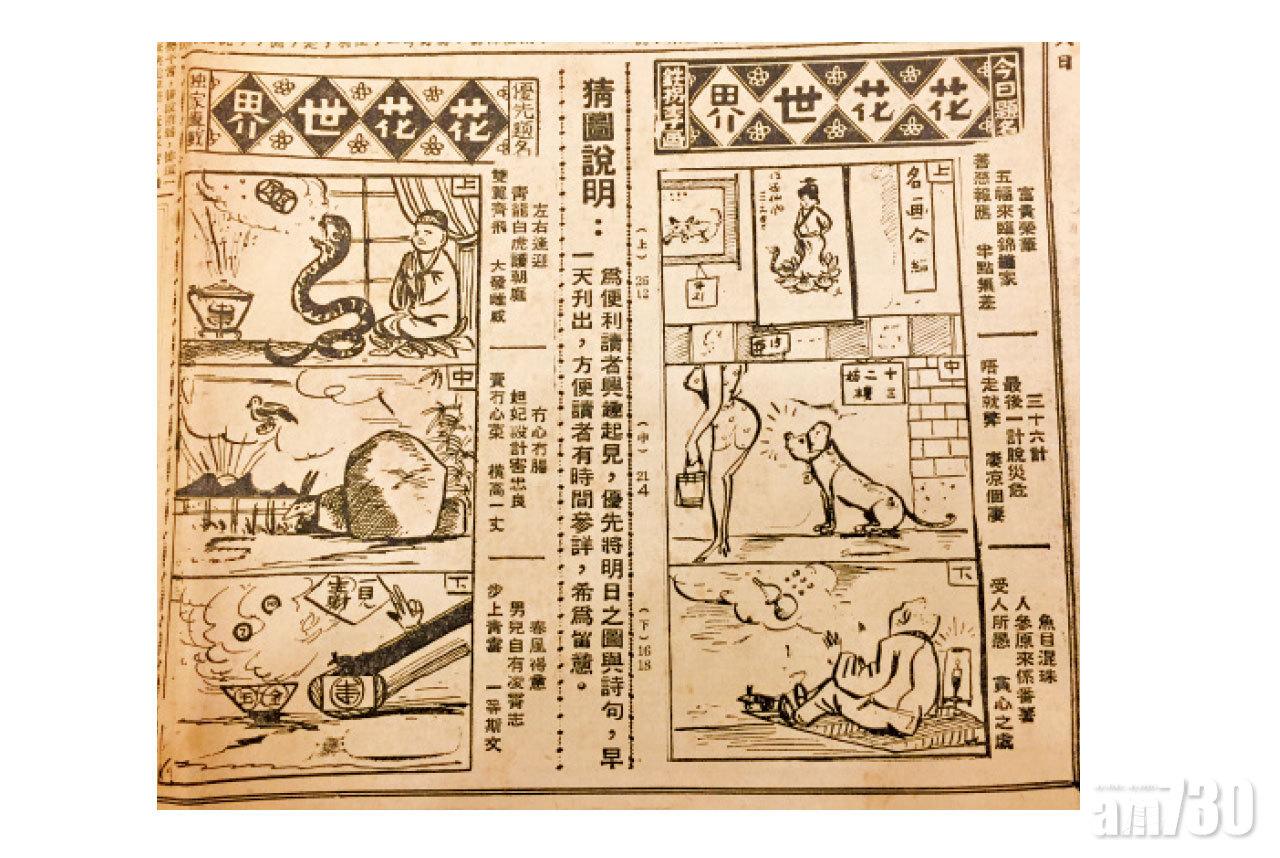 八日
今日題名
花花世界
鉄拐李画
富貴榮華
五福來臨錦繡家
善惡報應 半點無差
上
名画介紹
三十六計
最後一計脫災危
唔走就弊 凄凉個凄
中
十三
二
樓
魚目混珠
人參原來係番薯
受人所愚 貪心之處
下
(上)26 12
(中)21 4
(下)16 18
猜圖說明：
為便利讀者興趣起見，優先將明日之圖與詩句，早
一天刊出，方便讀者有時間參詳，希為留意。
優先題名
花花世界
独家專載
左右逢迎
青龍白虎護朝庭
雙翼齊飛 大發雌威
上
冇心冇腸
妲妃設計害忠良
賣冇心菜 橫高一丈
中
春風得意
男兒自有凌霄志
步上青雲 一等斯文
下
am730